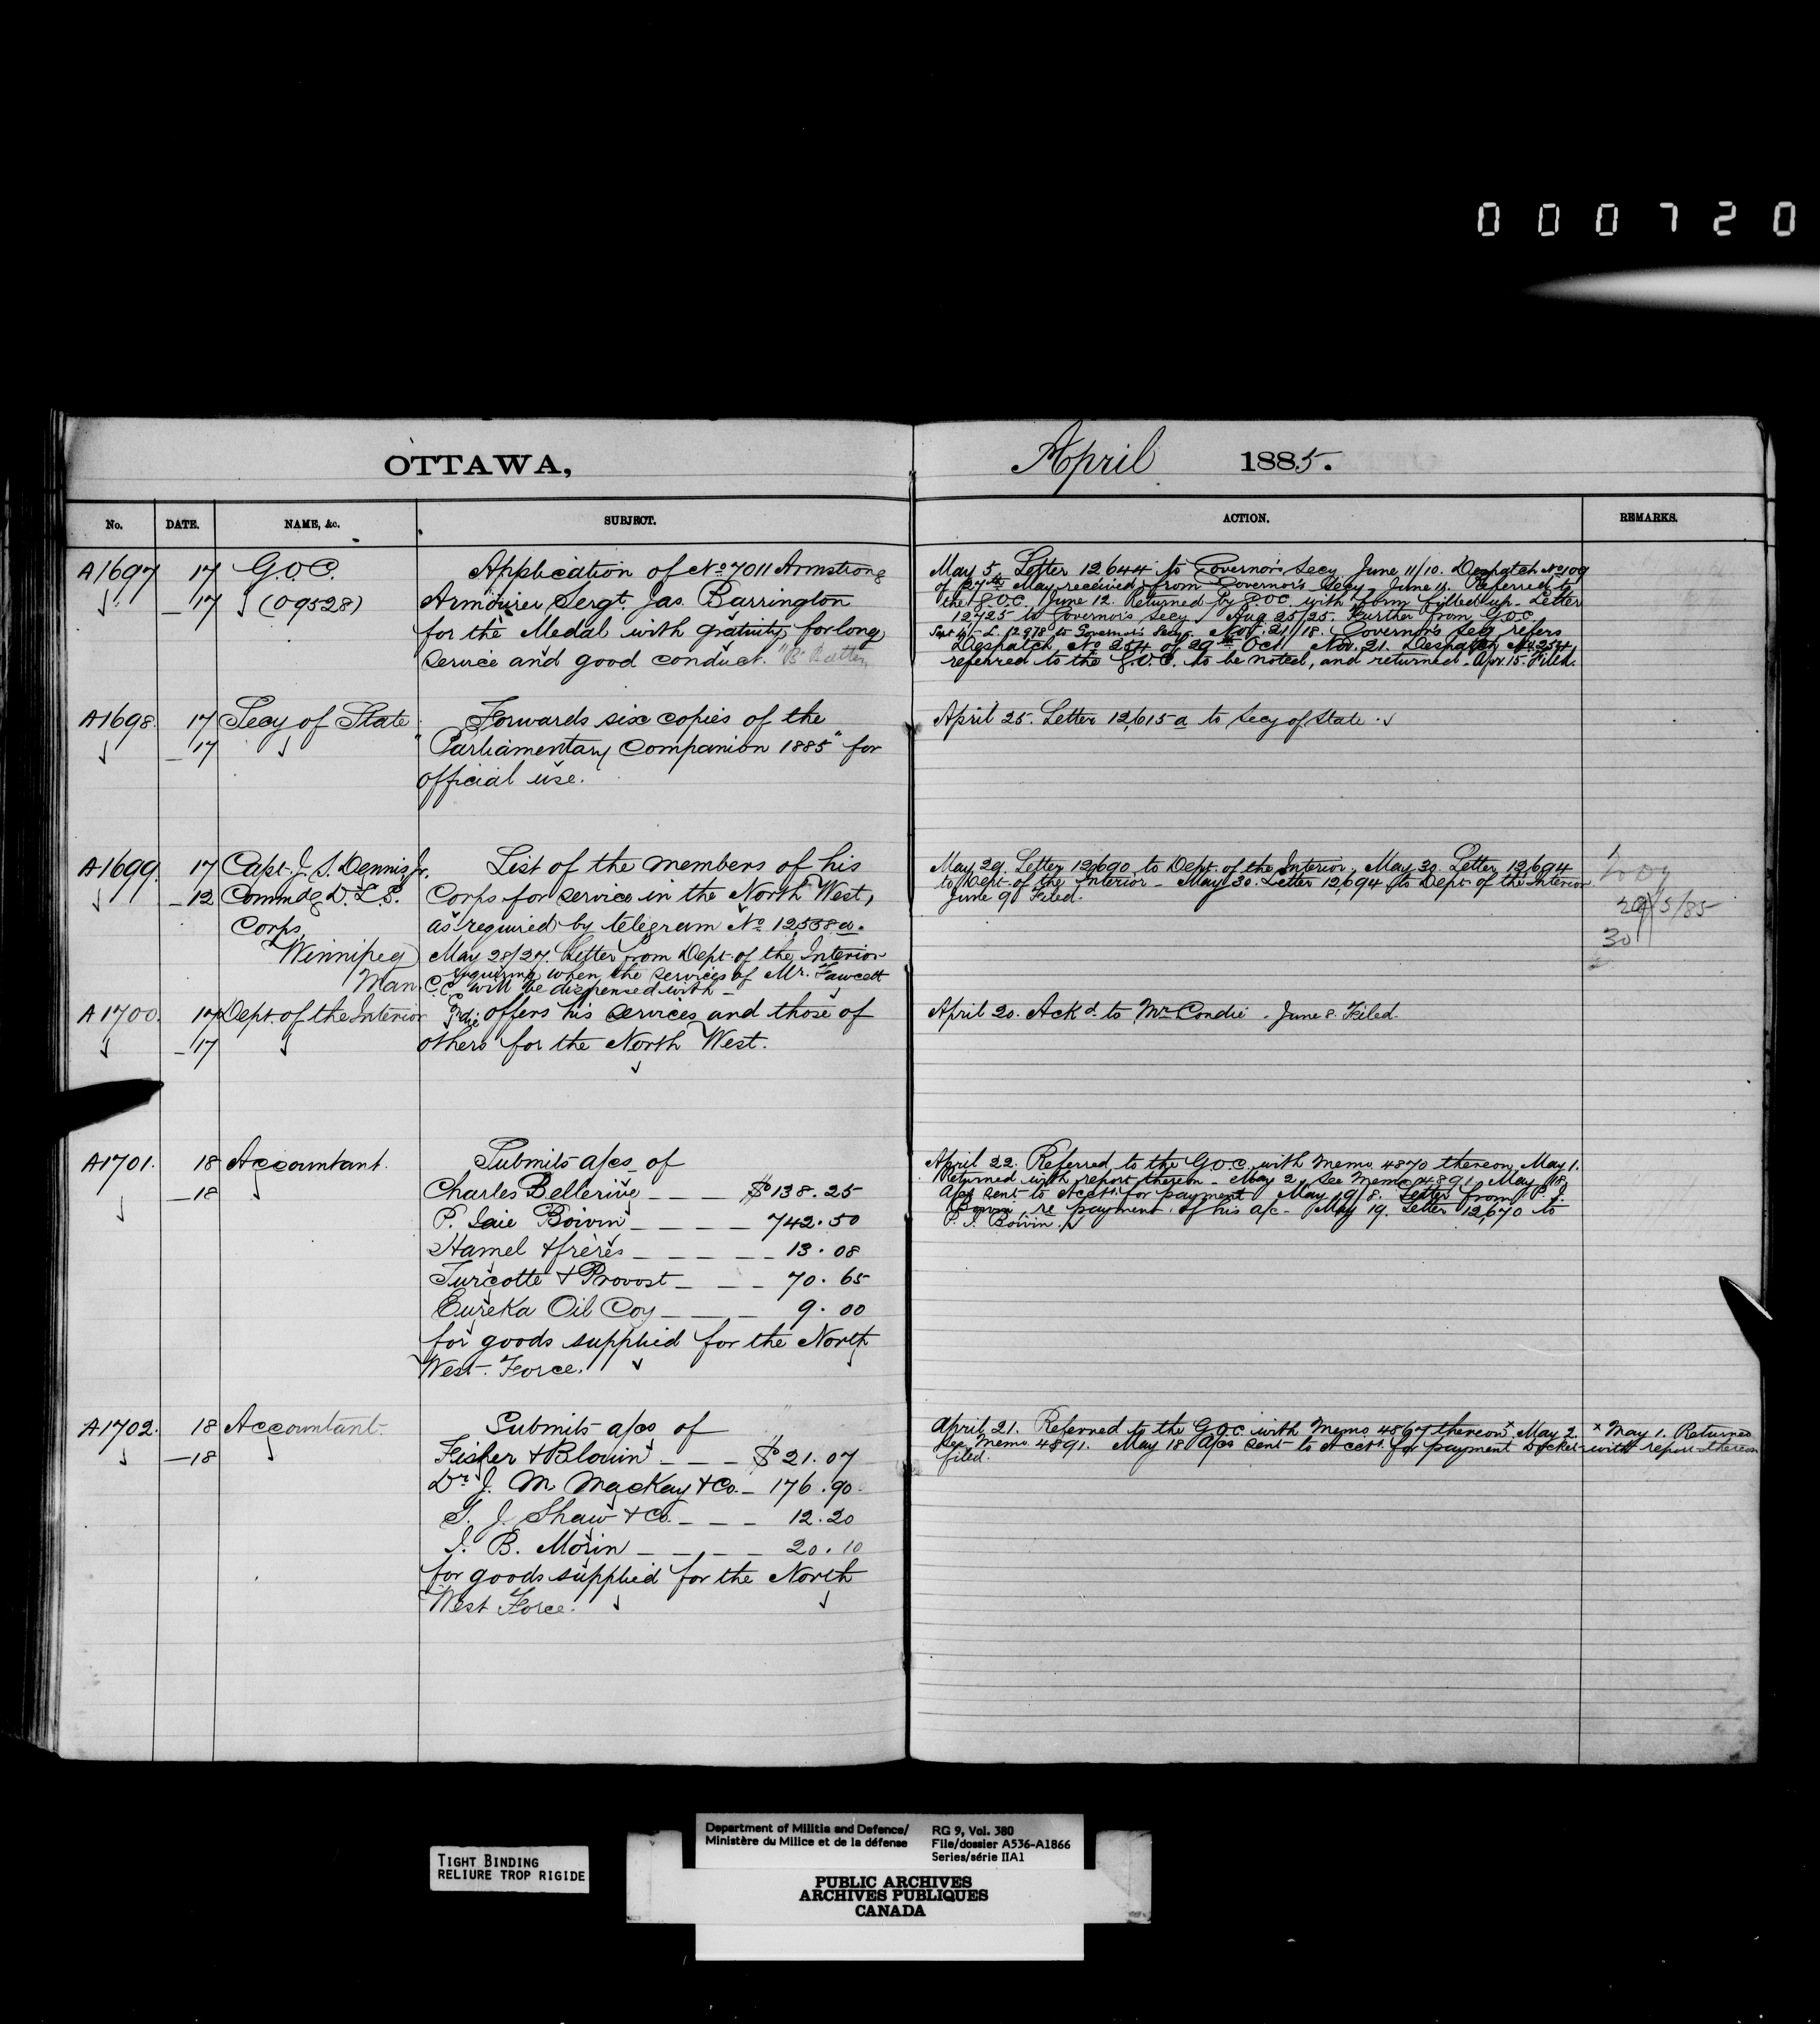 000720
OTTAWA,
April 1885.
No. DATE. NAME, &c. SUBJECT. ACTION. REMARKS.
A1697 17 G.O.C.
17 (09528)
Application of No 7011 Armstrong
Armourer Sergt. Jas. Barrington
for the Medal with gratuity for long
service and good conduct. "B" Battery
May 5. Letter 12644 to Governor's Secy. June 11/10. Despatch No 109
of 27th May received from Governor's Secy. June 11. Referred to
the G.O.C. June 12. Returned by G.O.C. with form filled up. Letter
12725 to Governor's Secy. Aug. 25/25. Further from G.O.C.
Sept 4 - L. 12978 to Governor's Secy. Nov. 21/18. Governor's Secy refers
Despatch No 254 of 29th Oct. Nov. 21. Despatch No 254
referred to the G.O.C. to be noted, and returned. Apr. 15. Filed.
A1698. 17 Secy of State
17
Forwards six copies of the
"Parliamentary Companion 1885" for
official use.
April 25. Letter 12,615a to Secy of State.
A1699. 17 Capt. J. S. Dennis Jr.
12 Commdg D. L. S.
Corps,
Winnipeg
Man.
List of the members of his
Corps for service in the North West,
as required by telegram No 12,558a.
May 28/27. Letter from Dept. of the Interior
inquiring when the services of Mr. Fawcett
will be dispensed with -
May 29. Letter 12,690 to Dept. of the Interior, May 30. Letter 12,694
to Dept. of the Interior - May 30. Letter 12,694 to Dept. of the Interior
June 9 Filed.
29/5/85
30
A1700. 17 Dept. of the Interior
17
C. C. Condie offers his services and those of
others for the North West.
April 20. Ackd. to Mr. Condie. June 8. Filed.
A1701. 18 Accountant.
18
Submits a/cs of
Charles Bellerive - - - $138.25
P. Isaie Boivin - - - - - 742.50
Hamel & frères - - - - - 13.08
Turcotte & Provost - - - 70.65
Eureka Oil Coy - - - - 9.00
for goods supplied for the North
West Force.
April 22. Referred to the G.O.C. with Memo 4870 thereon, May 1.
Returned with report thereon - May 2, See Memo 4891, May 18,
A/cs sent to Acctt. for payment. May 19/8. Letter from P. I.
Boivin re payment of his a/c - May 19. Letter 12,670 to
P. I. Boivin.
A1702. 18 Accountant.
18
Submits a/cs of
Fisher & Blouin - - - $21.07
Dr. J. M. Mackay & Co. - 176.90
S. J. Shaw & Co. - - - 12.20
I. B. Morin - - - - - 20.10
for goods supplied for the North
West Force.
April 21. Referred to the G.O.C. with Memo 4867 thereon x May 2.
See Memo. 4891. May 18 A/cs sent to Acctt. for payment Docket
filed.
x May 1. Returned
with report thereon
TIGHT BINDING
RELIURE TROP RIGIDE
Department of Militia and Defence/
Ministère du Milice et de la défense
RG 9, Vol. 380
File/dossier A536-A1866
Series/série IIA1
PUBLIC ARCHIVES
ARCHIVES PUBLIQUES
CANADA